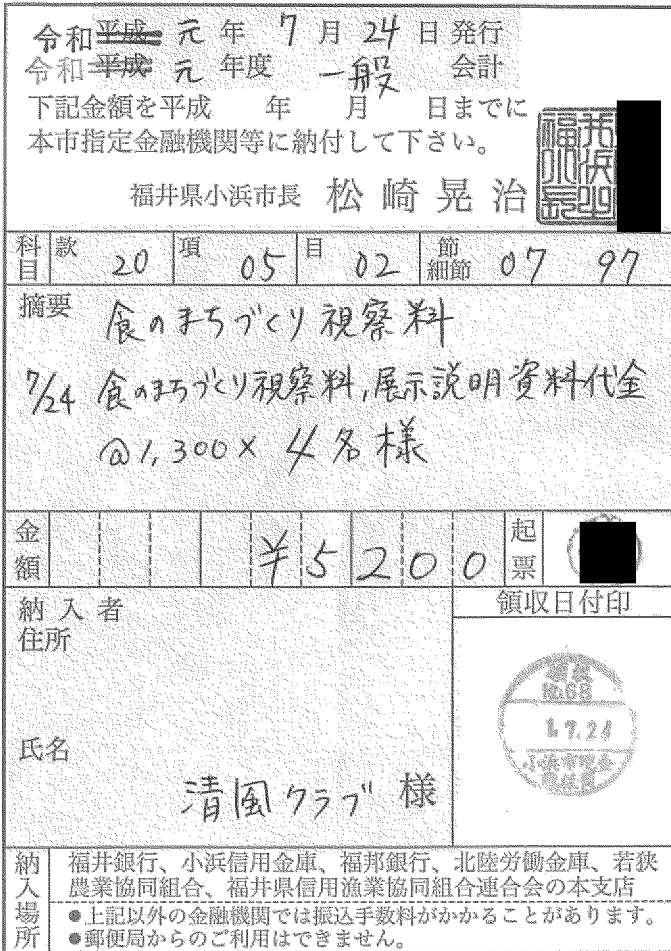 令和 平成 元 年 7 月 24 日 発行
令和 平成 元 年度 一般 会計
下記金額を平成 年 月 日までに
本市指定金融機関等に納付して下さい。
福井県小浜市長 松崎晃治
科目 款 20 項 05 目 02 節 細節 07 97
摘要 食のまちづくり視察料
7/24 食のまちづくり視察料,展示説明資料代金
@1,300× 4名様
金額 ¥5200 起票
納入者 領収日付印
住所
領収
No.68
1.7.24
小浜市
氏名
清風クラブ 様
納入場所 福井銀行、小浜信用金庫、福邦銀行、北陸労働金庫、若狭
農業協同組合、福井県信用漁業協同組合連合会の本支店
●上記以外の金融機関では振込手数料がかかることがあります。
●郵便局からのご利用はできません。